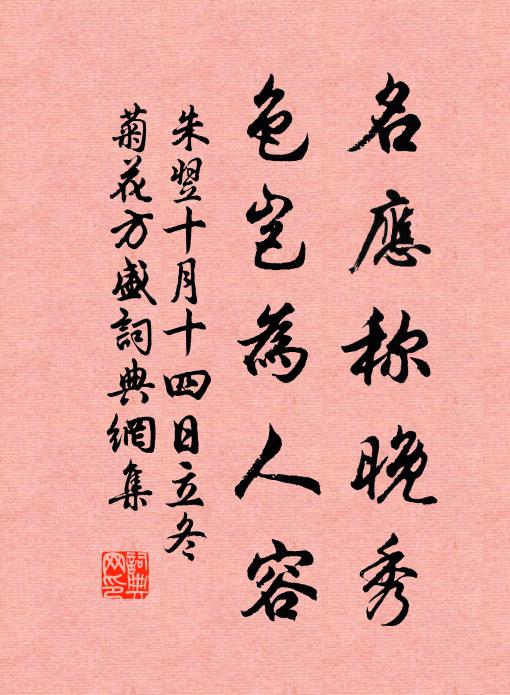 名應称晚秀
色豈為人容
朱翌十月十四日立冬
菊花方盛詞典網集
詞典
网印